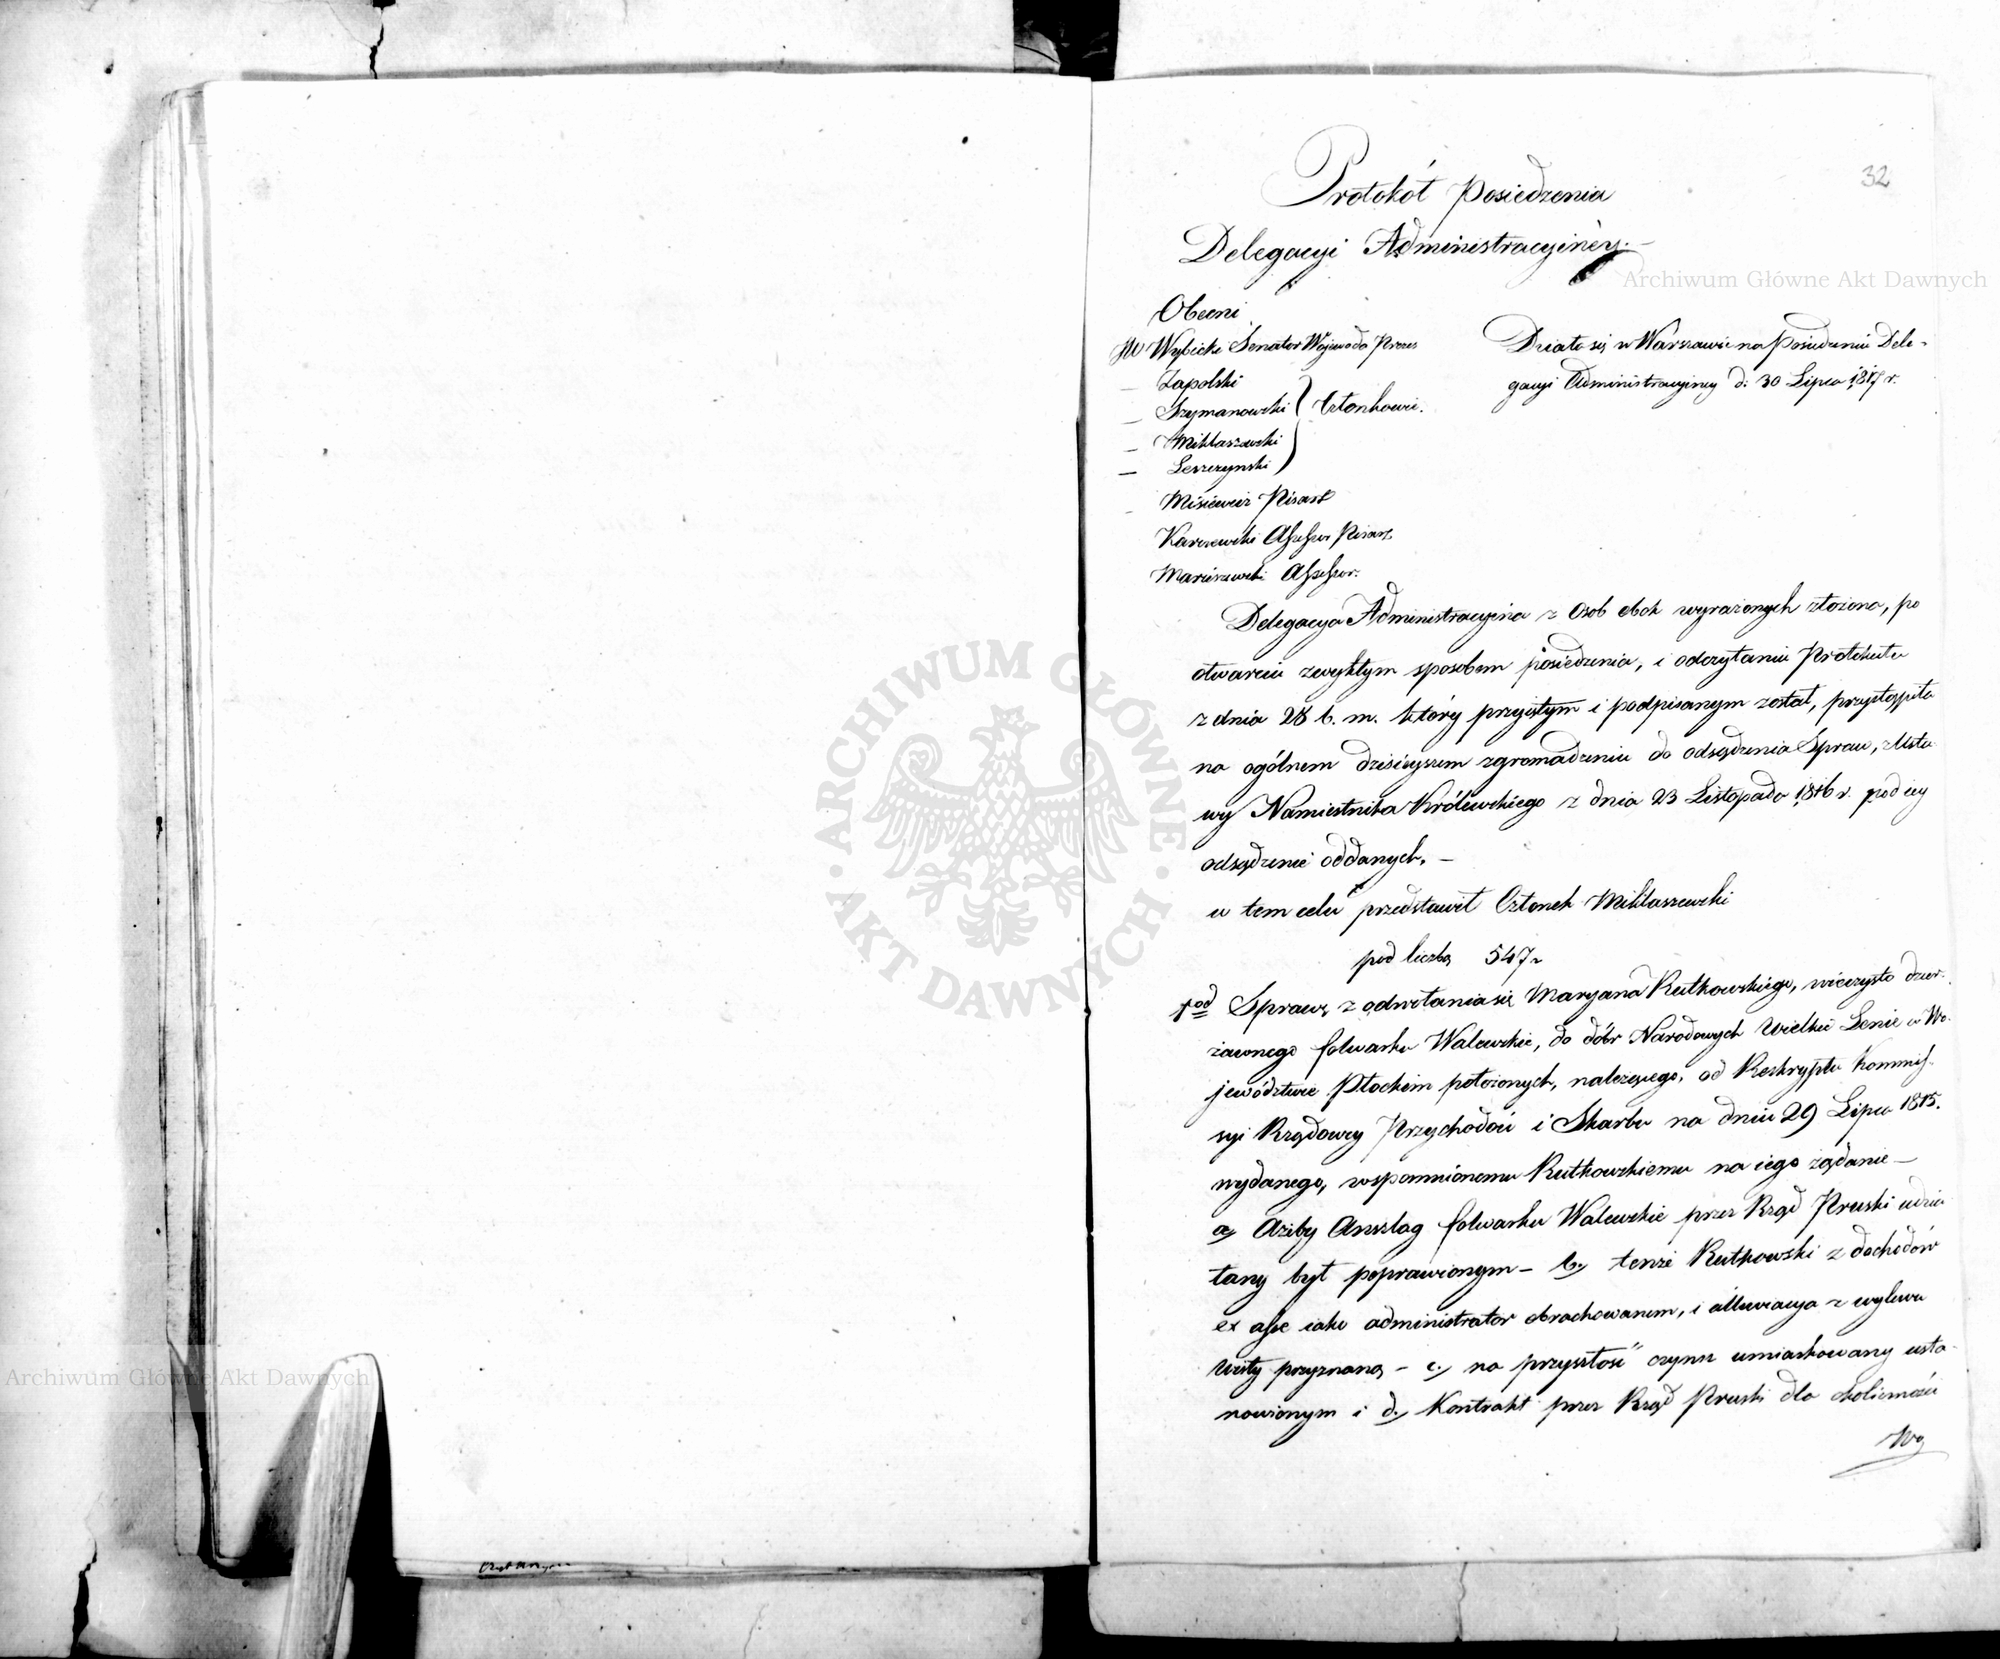 32
Protokół Posiedzenia
Delegacyi Administracyinéy.—
Archiwum Główne Akt Dawnych
Obecni
JW Wybicki Senator Wojewoda Prezes
— Zapolski
— Szymanowski
Członkowie.
— Miklaszewski
— Leszczynski
— Misiewicz Pisarz
Karczewski Assessor Pisarz
Assessor.
Działo się w Warszawie na Posiedzeniu Dele-
gacyi Administracyiney d: 30 Lipca 1817 r.
Delegacya Administracyina z Osób obok wyrażonych złożona, po
otwarciu zwykłym sposobem posiedzenia, i odczytaniu Protokułu
z dnia 28 b. m. który przyiętym i podpisanym został, przystąpiła
na ogólnem dzisieyszem zgromadzeniu do odsądzenia Spraw, z Usta-
wy Namiestnika Królewskiego z dnia 23 Listopada 1816 r. pod iey
odsądzenie oddanych. —
w tem celu przedstawił Członek Miklaszewski
pod liczbą 547
1od Sprawę z odwołania się Maryana Rutkowskiego, wieczysto dzier-
żawnego folwarku Walewskie, do dóbr Narodowych Wielkie Lenie w Wo-
jewództwie Płockim położonych, należącego, od Reskryptu Kommis-
syi Rządowey Przychodów i Skarbu na dniu 29 Lipca 1815.
wydanego, wspomnionemu Rutkowskiemu na iego żądanie —
a) Ażeby Anszlag folwarku Walewskie przez Rząd Pruski udzie
lany był poprawionym — b.) tenże Rutkowski z dochodów
ex asse iako administrator obrachowanem, i alluwiacya z wylewu
Wisły przyznaną — c.) na przyszłość czynsz umiarkowany usta-
nowionym i d.) Kontrakt przez Rząd Pruski dla okoliczności
Wy
ARCHIWUM GŁÓWNE · AKT DAWNYCH ·
Archiwum Główne Akt Dawnych